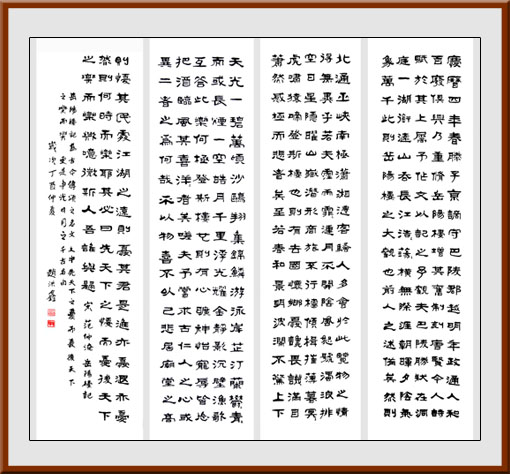 慶曆四年春滕子京謫守巴陵郡越明年政通人和
百廢俱興乃重修岳陽樓增其舊制刻唐賢今人詩
賦於其上屬予作文以記之予觀夫巴陵勝狀在洞
庭一湖銜遠山吞長江浩浩蕩蕩橫無際涯朝暉夕陰氣
象萬千此則岳陽樓之大觀也前人之述備矣然則
北通巫峽南極瀟湘遷客騷人多會於此覽物之情
得無異乎若夫霪雨霏霏連月不開陰風怒號濁浪排
空日星隱曜山岳潛形商旅不行檣傾楫摧薄暮冥冥
虎嘯猿啼登斯樓也則有去國懷鄉憂讒畏譏滿目
蕭然感極而悲者矣至若春和景明波瀾不驚上下
天光一碧萬頃沙鷗翔集錦鱗游泳岸芷汀蘭鬱鬱青青
而或長煙一空皓月千里浮光耀金靜影沉璧漁歌
互答此樂何極登斯樓也則有心曠神怡寵辱皆忘
把酒臨風其喜洋洋者矣嗟夫予嘗求古仁人之心或
異二者之為何哉不以物喜不以己悲居廟堂之高
則憂其民處江湖之遠則憂其君是進亦憂退亦憂
然則何時而樂耶其必曰先天下之憂而憂後天下
之樂而樂歟噫微斯人吾誰與歸 宋范仲淹岳陽樓記
岳陽樓記為古今傳誦之名文文中先天下之憂而憂後天下
之樂而樂更是
歲次丁酉仲夏